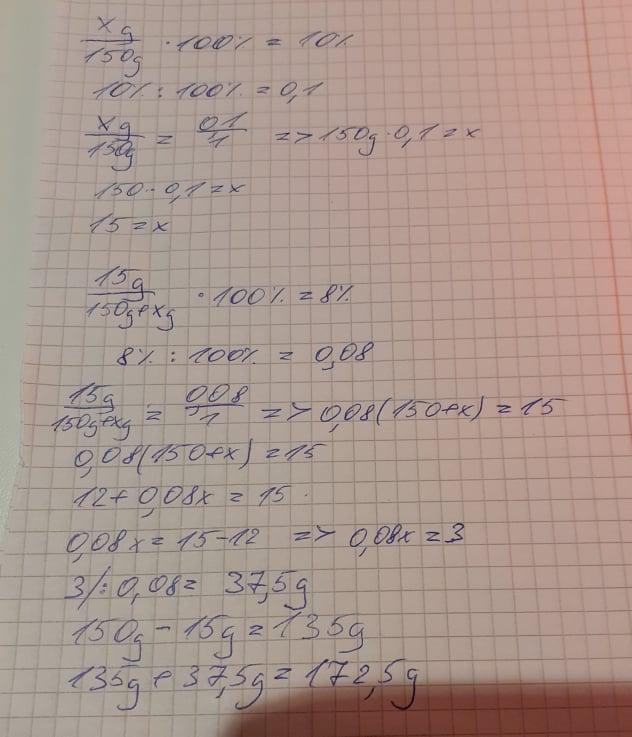 x g / 150g · 100% = 10%
10% : 100% = 0,1
x g / 150g = 0,1 / 1 => 150g · 0,1 = x
150 · 0,1 = x
15 = x
15g / 150g+xg · 100% = 8%
8% : 100% = 0,08
15g / 150g+xg = 0,08 / 1 => 0,08(150+x) = 15
0,08(150+x) = 15
12 + 0,08x = 15
0,08x = 15-12 => 0,08x = 3
3/: 0,08 = 37,5g
150g - 15g = 135g
135g + 37,5g = 172,5g